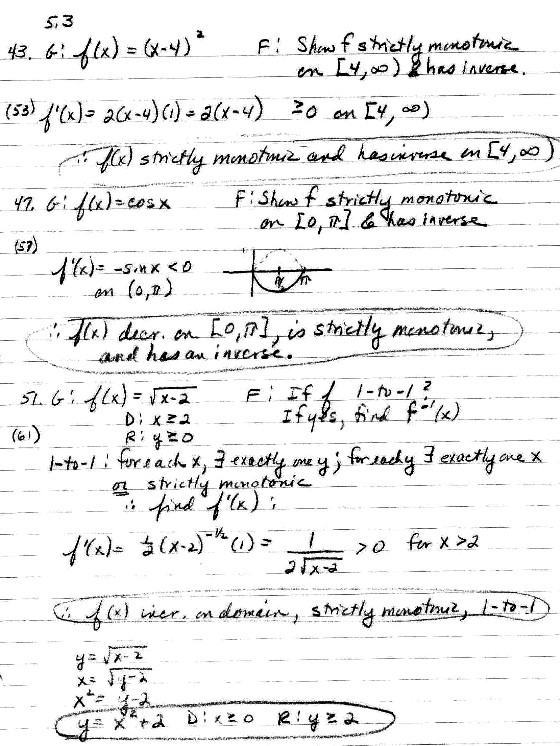 5.3
43. G: f(x) = (x-4)² F: Show f strictly monotonic
on [4,∞) & has inverse.
(53) f'(x) = 2(x-4)(1) = 2(x-4) ≥0 on [4, ∞)
∴ f(x) strictly monotonic and has inverse on [4,∞)
47. G: f(x) = cos x F: Show f strictly monotonic
on [0,π] & has inverse
(57)
f'(x) = -sin x < 0
on (0,π)
π
∴ f(x) decr. on [0,π], is strictly monotonic,
and has an inverse.
51. G: f(x) = √x-2 F: If f 1-to-1?
D: x≥2 If yes, find f⁻¹(x)
(61) R: y≥0
1-to-1: for each x, ∃ exactly one y; for each y ∃ exactly one x
or strictly monotonic
∴ find f'(x):
f'(x) = ½(x-2)^-½ (1) = 1/(2√x-2) > 0 for x>2
∴ f(x) incr. on domain, strictly monotonic, 1-to-1
y = √x-2
x = √y-2
x² = y-2
y = x²+2 D: x≥0 R: y≥2